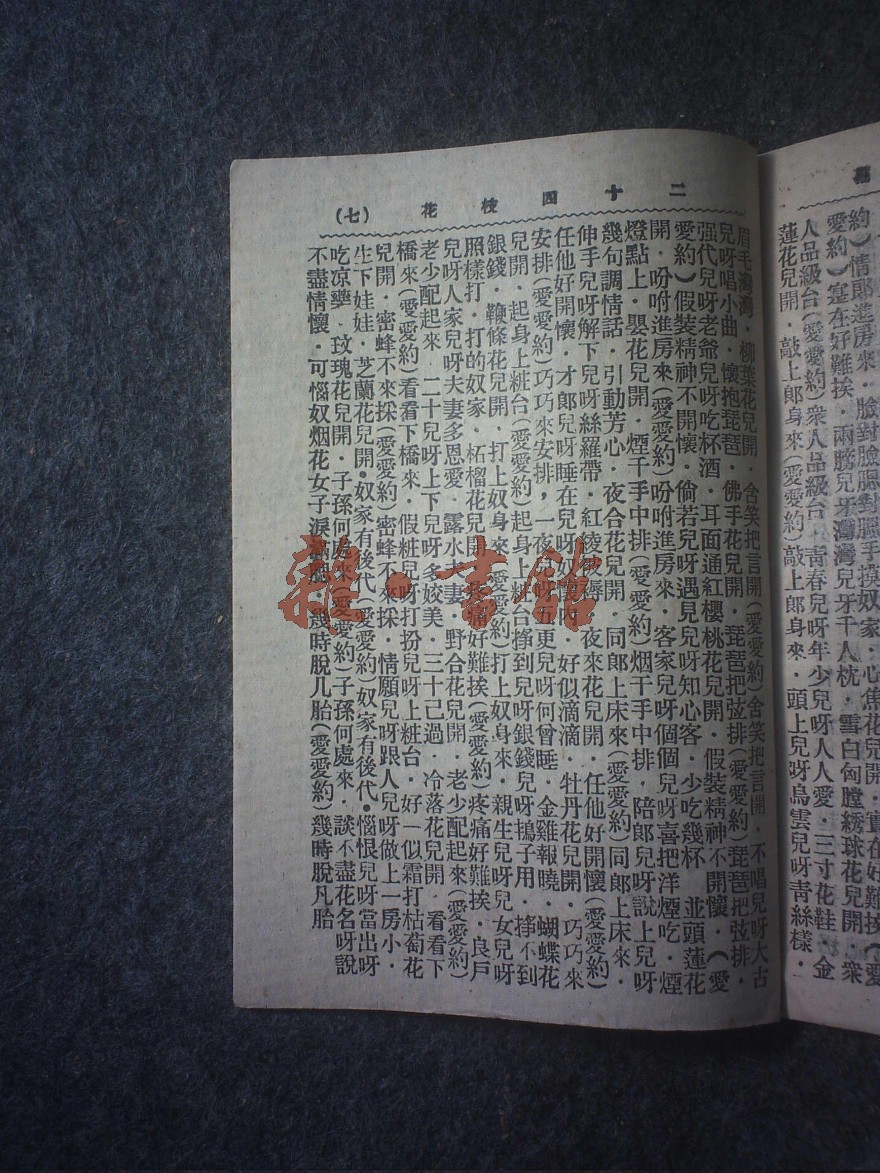 約）情郎進房來．臉對臉腮對腮手摸奴家．心焦花兒開．實在好難挨（愛
愛約）寔在好難挨．兩膀兒牙灣灣兒牙千人枕．雪白匈膛綉球花兒開．衆
人品級台（愛愛約）衆人品級台．青春兒呀年少兒呀人人愛．三寸花鞋．金
蓮花兒開．敲上郎身來（愛愛約）敲上郎身來．頭上兒呀烏雲兒呀青絲樣．
二十四枝花 （七）
眉毛灣灣．柳葉花兒開．含笑把言開（愛愛約）含笑把言開．不唱兒呀大古
兒呀唱小曲．懷抱琵琶．佛手花兒開．琵琶把弦排（愛愛約）琵琶把弦排．
强代兒呀老爺兒呀吃杯酒．耳面通紅櫻桃花兒開．假裝精神不開懷．（愛
愛約）假裝精神不開懷．倘若兒呀遇見兒呀知心客．少吃幾杯　並頭蓮花
開．吩咐進房來（愛愛約）吩咐進房來．客家兒呀個個兒呀喜把洋煙吃．煙
燈點上．罌花兒開．煙千手中排（愛愛約）烟干手中排．陪郎兒呀說上兒呀
幾句調情話．引動芳心．夜合花兒開．同郎上床來（愛愛約）同郎上床來．
伸手兒呀解下兒呀絲羅帶．紅綾被褥．夜來花兒開．任他好開懷（愛愛約）
任他好開懷．才郎兒呀睡在兒呀奴懷內．好似滴滴．牡丹花兒開．巧巧來
安排（愛愛約）巧巧來安排，一夜兒呀五更兒呀何曾睡．金雞報曉．蝴蝶花
兒開．起身上粧台（愛愛約）起身上粧台掙到兒呀銀錢兒呀搗子用．掙不到
銀錢．鞭條花兒開．打上奴身來（愛愛約）打上奴身來．親生兒呀兒女兒呀
照樣打．打的奴家．柘榴花兒開．疼痛好難挨（愛愛約）疼痛好難挨．良戶
兒呀人家兒呀夫妻多恩愛．露水夫妻．野合花兒開．老少配起來（愛愛約）
老少配起來．二十兒呀上下兒呀多姣美．三十己過．冷落花兒開．看看下
橋來（愛愛約）看看下橋來．假粧兒呀打扮兒呀上粧台．好一似霜打枯萄花
兒開．密蜂不來採（愛愛約）密蜂不來採．情願兒呀跟人兒呀做上一房小．
生下娃娃．芝蘭花兒開．奴家有後代（愛愛約）奴家有後代．惱恨兒呀當出呀
吃凉藥．玟瑰花兒開．子孫何處來（愛愛約）子孫何處來．談不盡花名呀說
不盡情懷．可惱奴烟花女子淚滿腮．幾時脫几胎（愛愛約）幾時脫凡胎
雜·書館